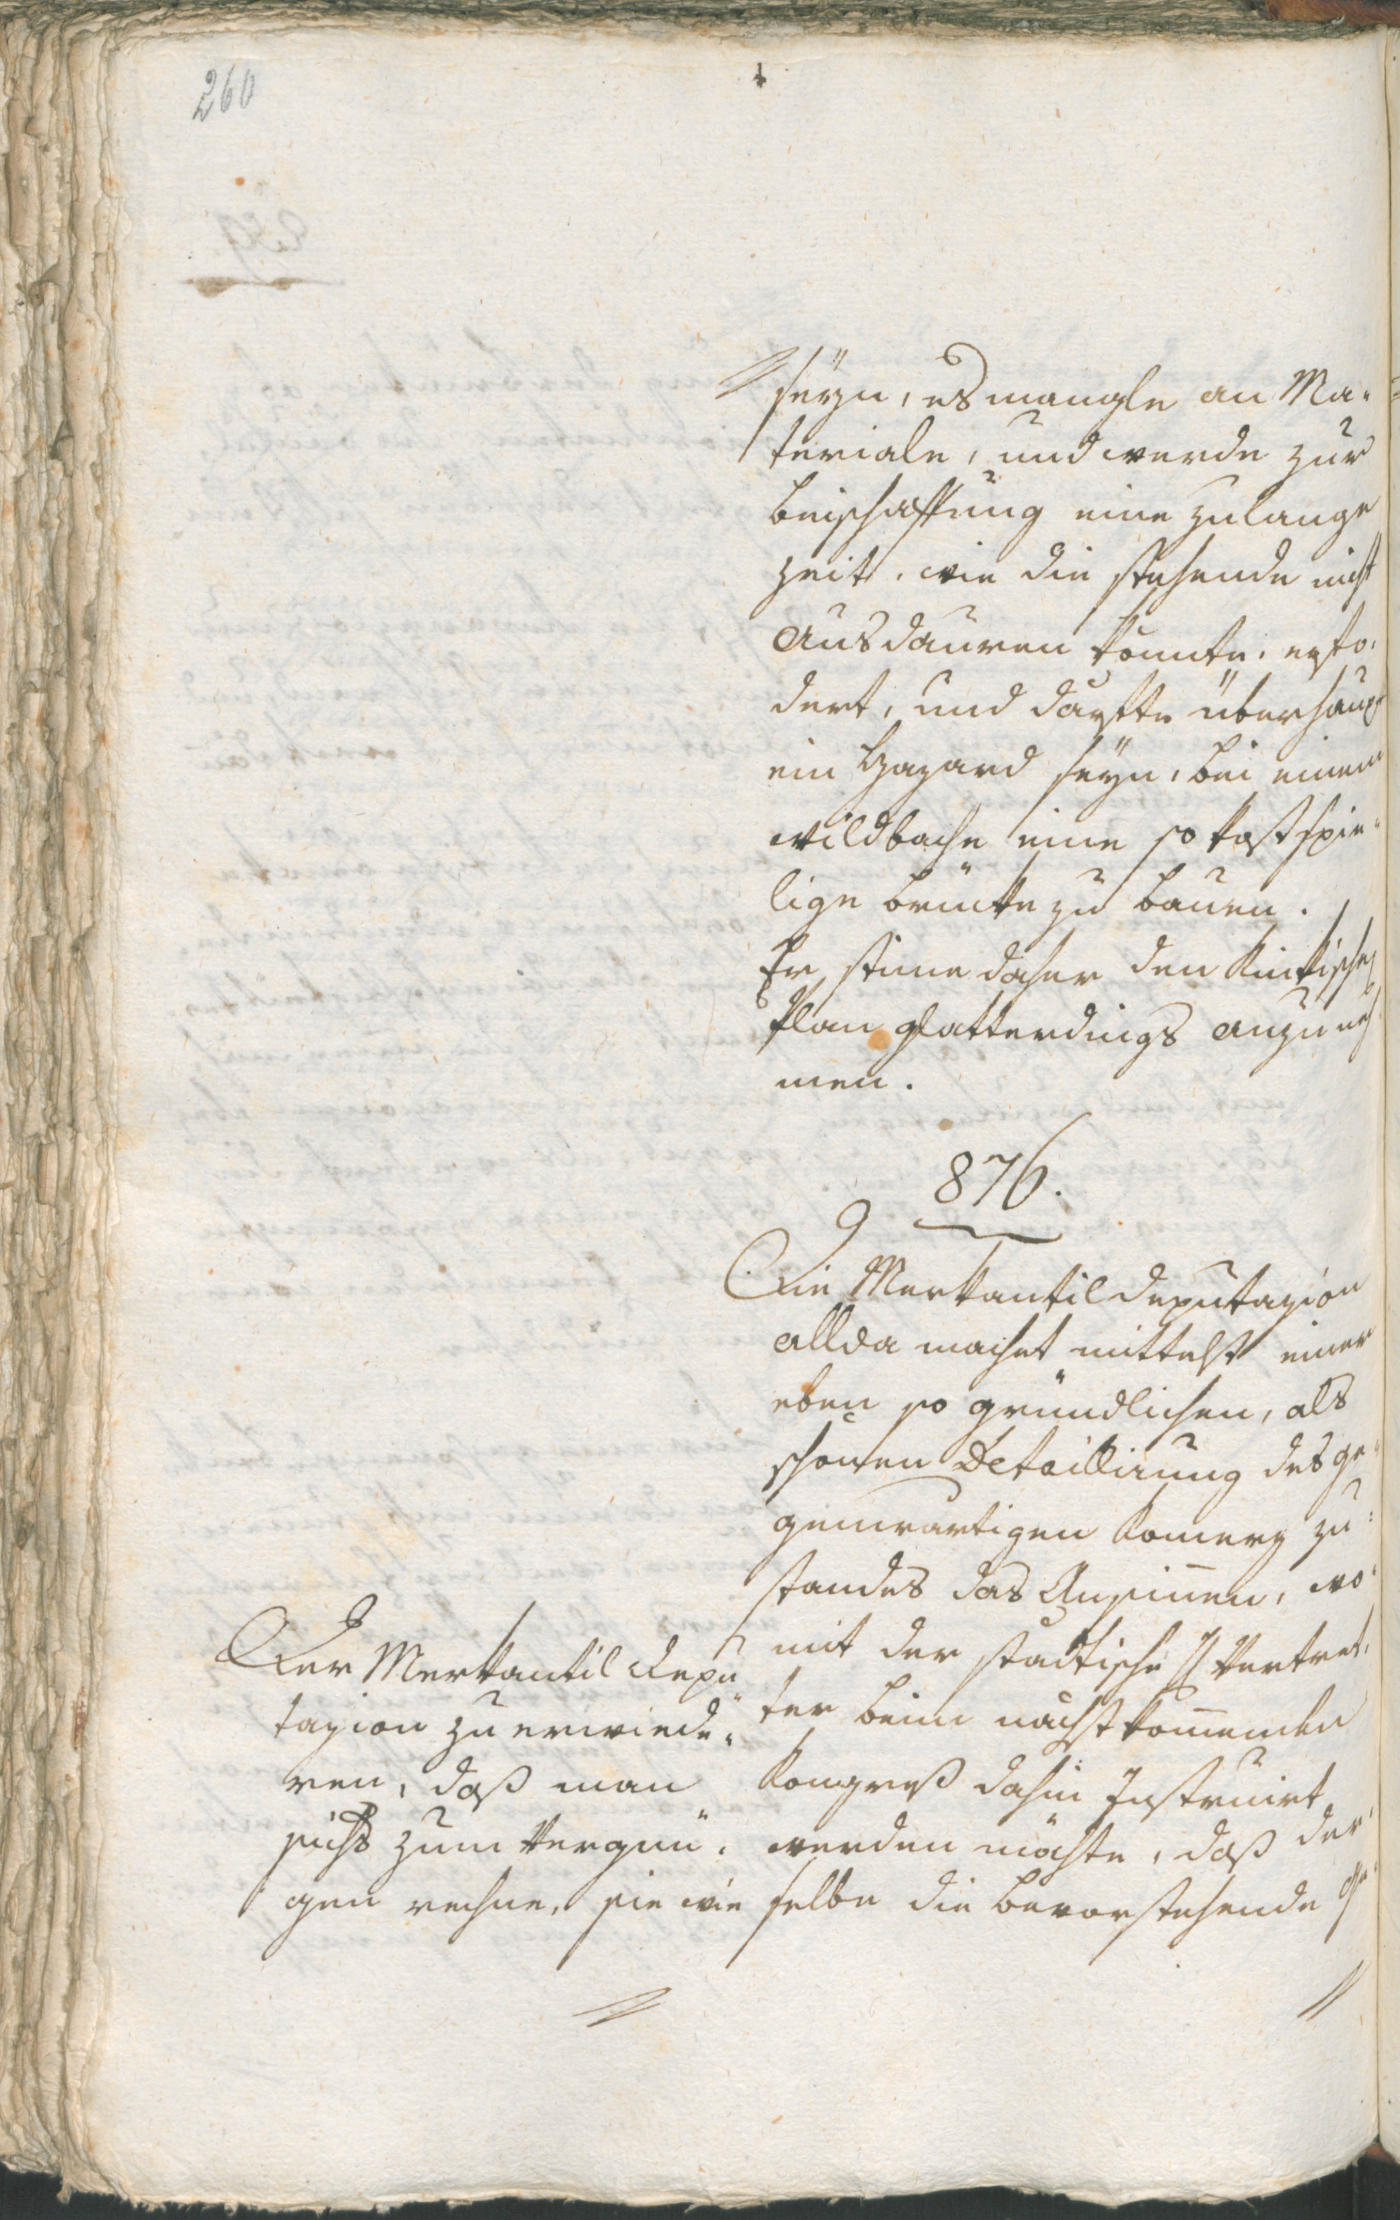 260
seÿn, es mangle an Ma-
teriale, und werde zur
beischaffung eine zulange
zeit, wie die stehende nicht
ausdauren könnte, erfo-
dert, und dörfte überhaupt
ein Hazard seÿn, bei einem
wildbache eine so kostspie-
lige brücke zu bauen.
Er stime daher den Kinkischen
Plan glatterdings anzuneh-
men.
876.
Die Merkantildeputazion
allda machet mittelst einer
eben so gründlichen, als
schönen Detaillirung des ge-
genwärtigen Komerz zu-
standes das Ansinnen, wo-
mit der stadtische H Vertret-
ter beim nächstkommenden
Kongreß dahin Instruirt
werden möchte, daß der-
selbe die bevorstehende
Der Merkantil Depu-
tazion zu erwiede-
ren, daß man
sichs zum Vergnü-
gen rechne, sie wie